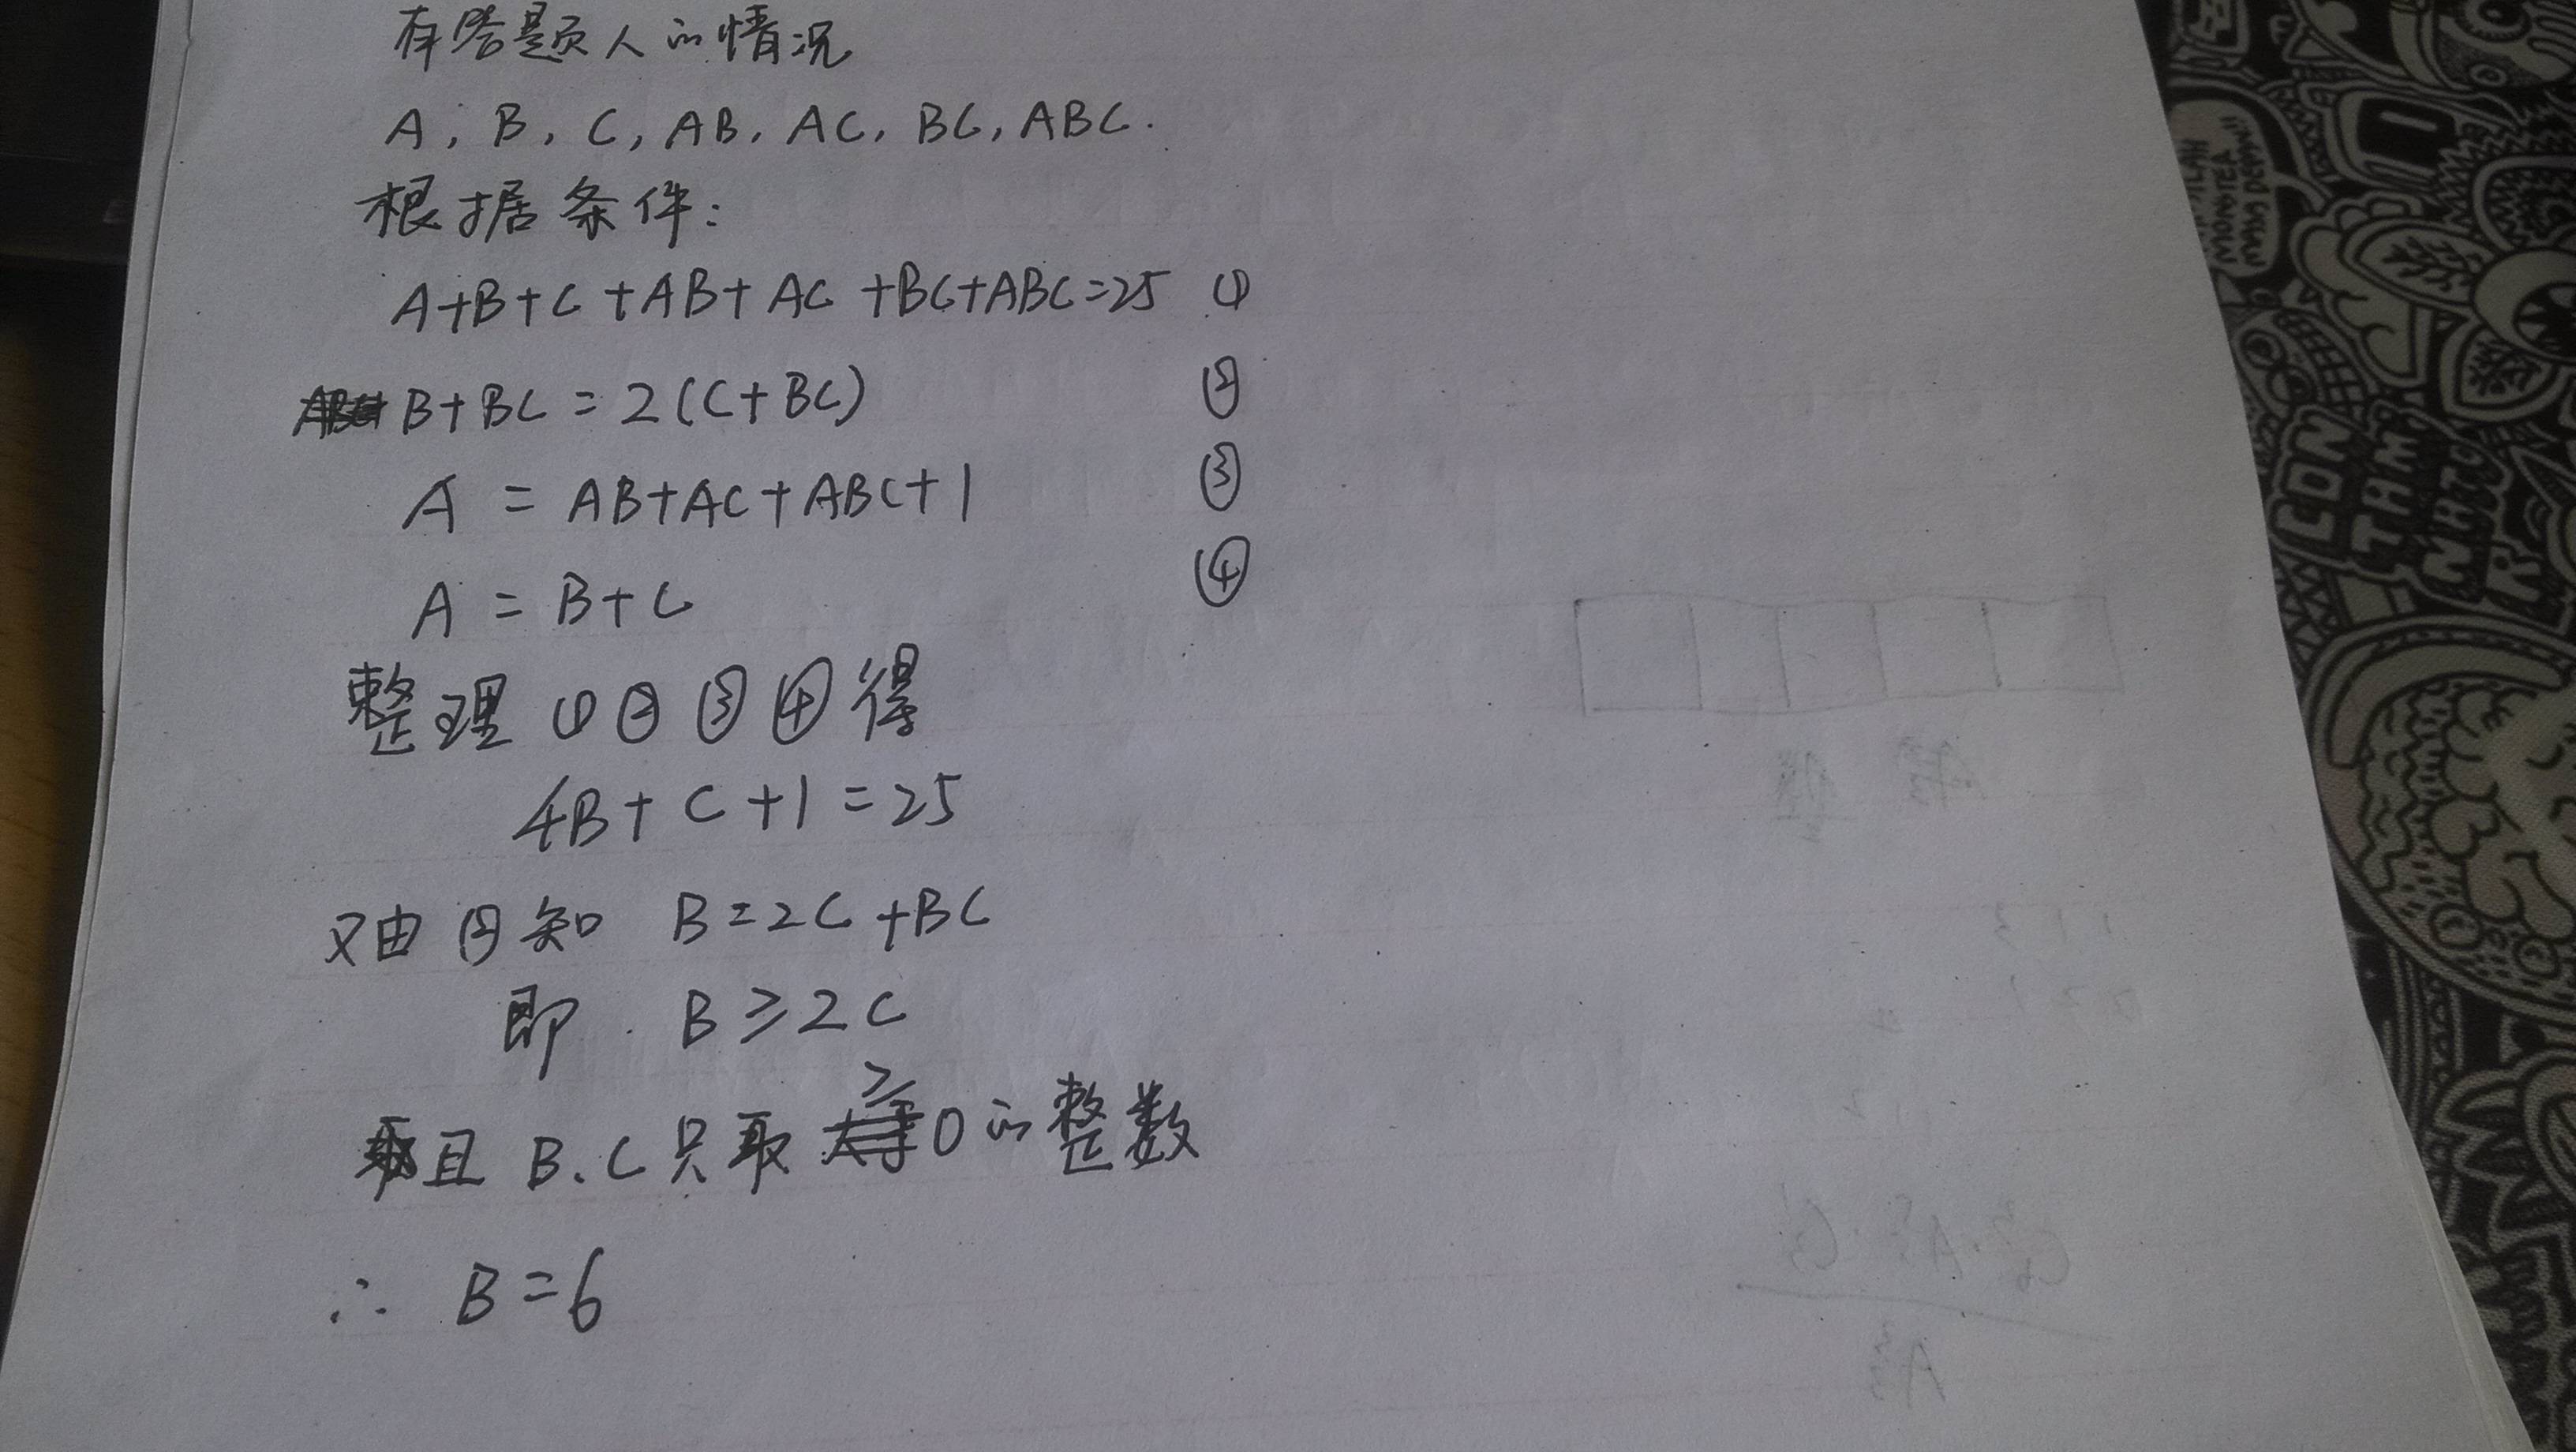 有答题人的情况
A, B, C, AB, AC, BC, ABC.
根据条件:
A+B+C+AB+AC+BC+ABC=25 ①
B+BC=2(C+BC) ②
A=AB+AC+ABC+1 ③
A=B+C ④
整理①②③④得
4B+C+1=25
又由②知 B=2C+BC
即 B≥2C
且B.C只取≥0的整数
∴ B=6
CON
THAM